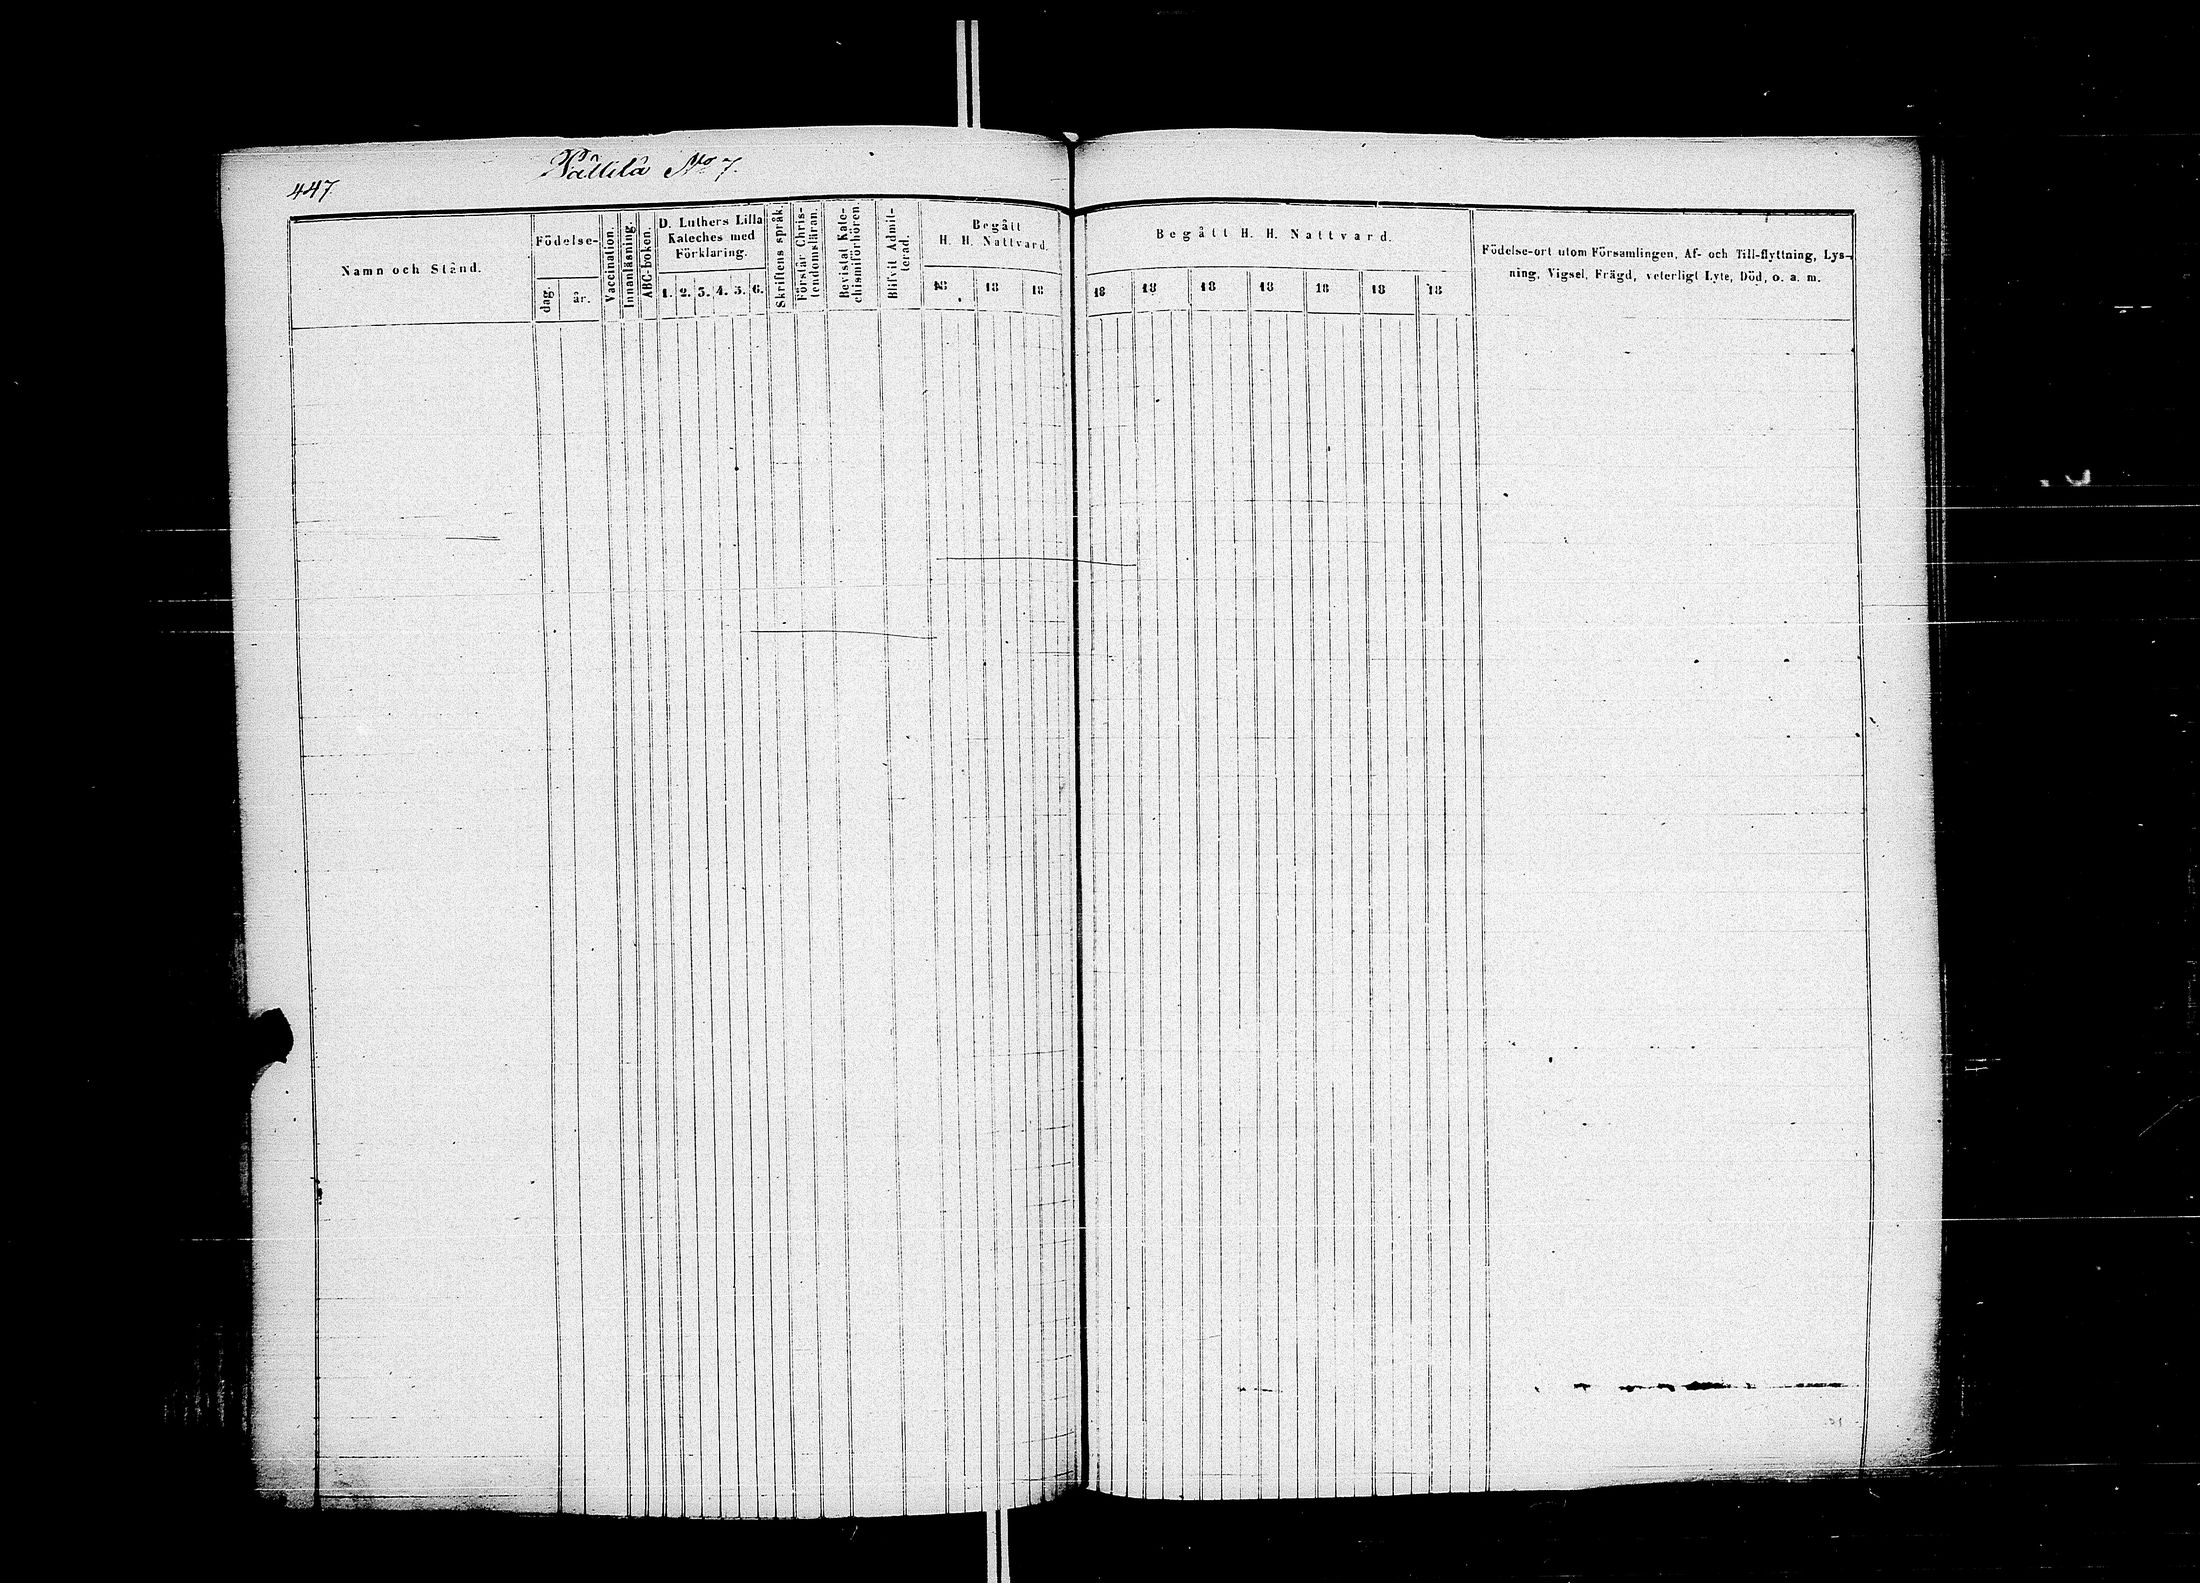 447.
No 7.
Namn och Stånd.
Födelse-
dag.
år.
Vaccination.
Innanläsning.
ABC-boken.
D. Luthers Lilla
Kateches med
Förklaring.
1. 2. 3. 4. 5. 6.
Skriftens språk.
Förstår Chris-
tendomsläran.
Bevistat Kate-
chismiförhören.
Blifvit Admit-
terad.
Begått
H. H. Nattvard.
18 18 18
Begått H. H. Nattvard.
18 18 18 18 18 18 18
Födelse-ort utom Församlingen, Af- och Till-flyttning, Lys-
ning, Vigsel, Frägd, veterligt Lyte, Död, o. a. m.